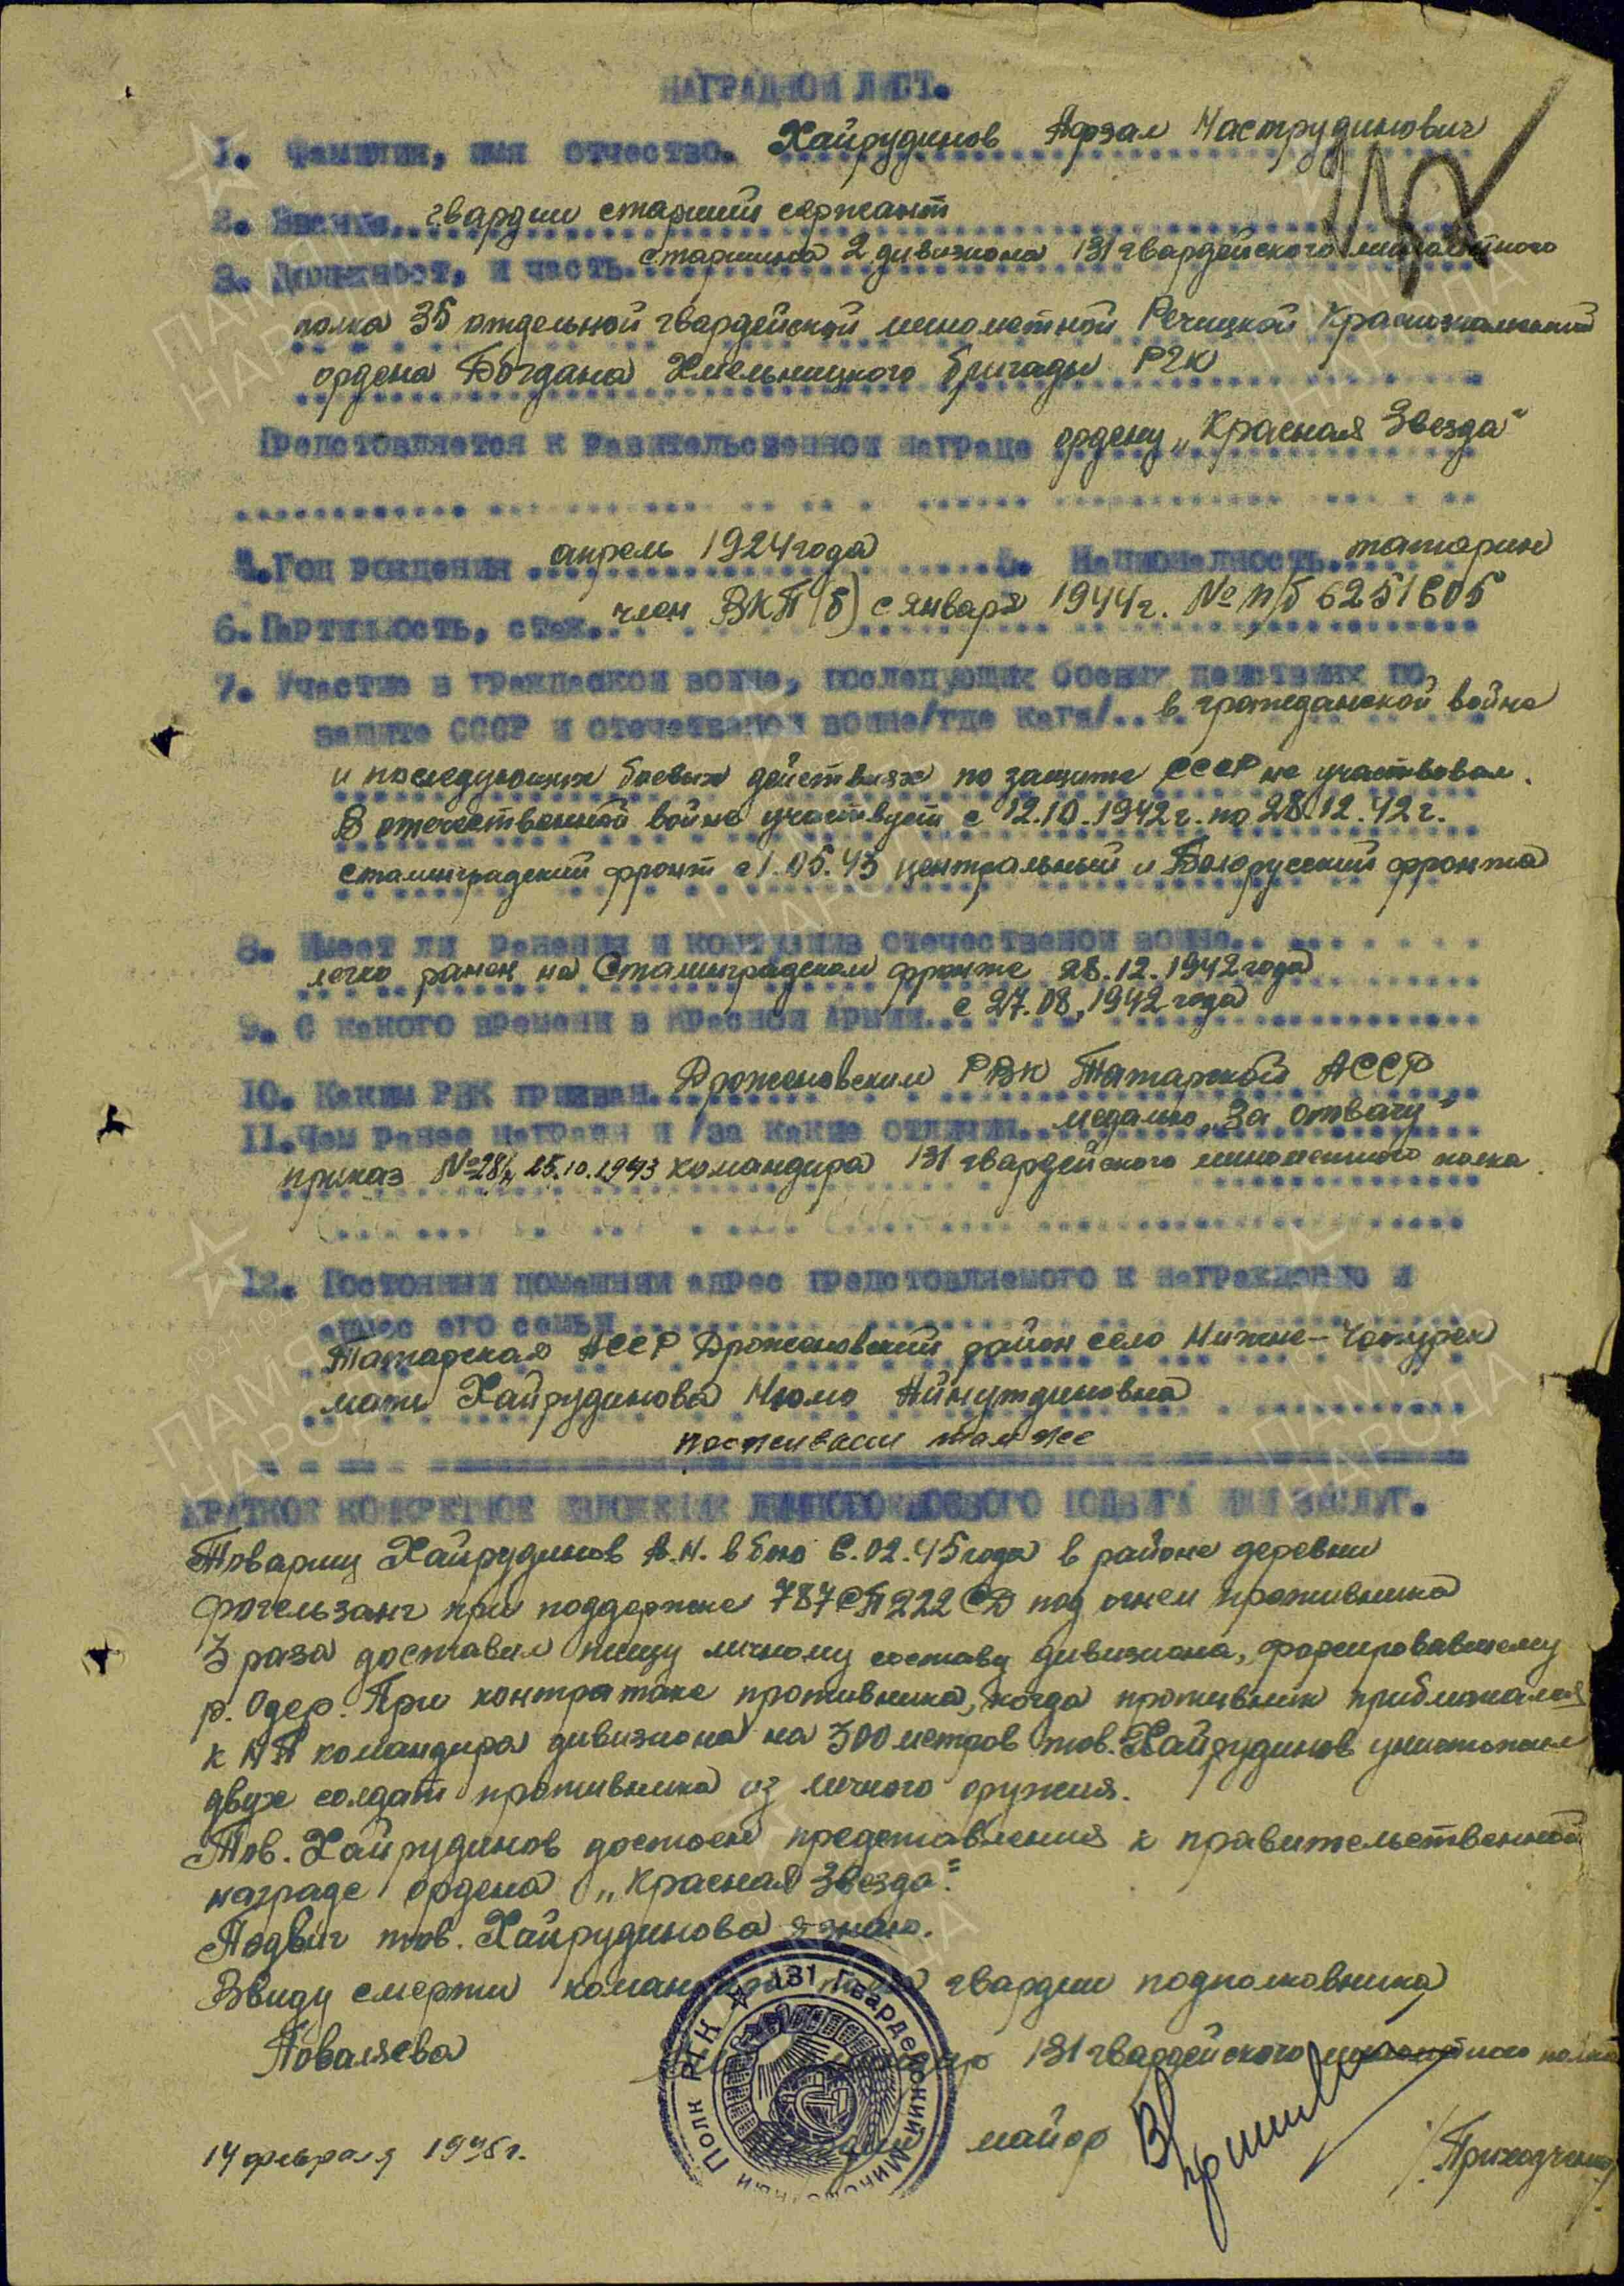 НАГРАДНОЙ ЛИСТ.
1. Фамилия, имя отчество. Хайрудинов Афзал Наструдинович
2. Звание. гвардии старший сержант
3. Должност, и часть. старшина 2 дивизиона 131 гвардейского минометного
полка 35 отдельной гвардейской минометной Речицкой Краснознаменной
ордена Богдана Хмельницкого бригады РГК
Предстовляется к равительственной награде ордену „Красная Звезда"
4. Год рождения апрель 1924 года 5. Националность. татарин
6. Партийность, стаж. член ВКП(б) с января 1944 г. № п/б 6251605
7. Участие в гражданской войне, последующих боевых действиях по
защите СССР и отечественой войне/где когя/.. в гражданской войне
и последующих боевых действиях по защите СССР не участвовал.
В отечественной войне участвует с 12.10.1942 г. по 28.12.42 г.
Сталинградский фронт с 1.05.43 центральный и Белорусский фронта
8. Имеет ли ранения и контузиив отечественой войне..
легко ранен на Сталинградском фронте 28.12.1942 года
9. С какого времени в Красной Армии. с 27.08.1942 года
10. Каким РВК призван. Дрожановским РВК Татарской АССР
11. Чем ранее награжден и /за какие отличия. медалью „За отвагу"
приказ №28/н 25.10.1943 командира 131 гвардейского минометного полка.
12. Постоянный домашний адрес предстовляемого к награждению и
адрес его семьи
Татарская АССР Дрожановский район село Нижне-Чекурск
мать Хайрудинова Айнутдиновна
проживает там же
КРАТКОЕ КОНКРЕТНОЕ ИЗЛОЖЕНИЕ ЛИЧНОГО БОЕВОГО ПОДВИГА ИЛИ ЗАСЛУГ.
Товарищ Хайрудинов А.Н. в бою 6.02.45 года в районе деревни
Фогельзанг при поддержке 787 СП 222 СД под огнем противника
3 раза доставил пищу личному составу дивизиона, форсировавшему
р. Одер. При контратаке противника, когда противник приближался
к НП командира дивизиона на 300 метров тов. Хайрудинов уничтожил
двух солдат противника из личного оружия.
Тов. Хайрудинов достоен представления к правительственной
награде ордена „Красная Звезда".
Подвиг тов. Хайрудинова я знаю.
Ввиду смерти командира полка гвардии подполковника
Поваляева
131 гвардейского минометного полка
гвардии майор /Приходченко/
14 февраля 1945 г.
131 Гвардейский Минометный Полк РГК
ПАМЯТЬ НАРОДА